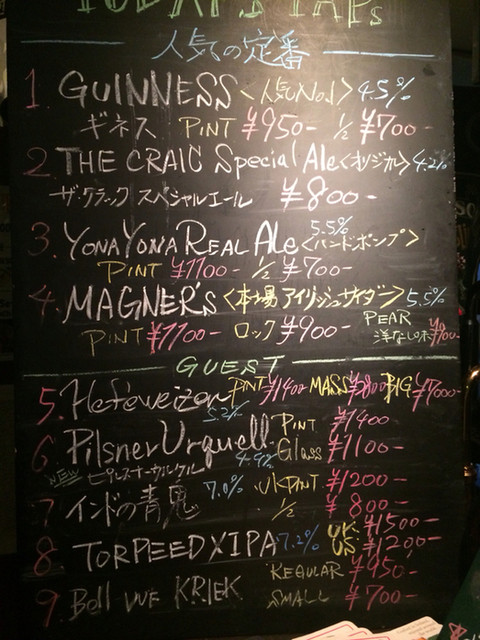 TODAY'S TAPs
人気の定番
1. GUINNESS <人気No.1> 4.5%
ギネス PINT ¥950- 1/2 ¥700-
2. THE CRAIC Special Ale <オリジナル> 4.2%
ザ・クラック スペシャルエール ¥800-
3. YONA YONA REAL Ale 5.5% <ハンドポンプ>
PINT ¥1100- 1/2 ¥700-
4. MAGNER'S <本場アイリッシュサイダー> 5.5%
PINT ¥1100- ロック ¥900- PEAR 洋なし味
GUEST
5. Hefeweizen 5.2% PINT ¥1400 MASS BIG
6. Pilsner Urquell 4.4% PINT ¥1400
NEW ピルスナーウルケル Glass ¥1100-
7 インドの青鬼 7.0% UK PINT ¥1200-
1/2 ¥800-
8. TORPEED X IPA 7.2% UK ¥1500-
US ¥1200-
9. Bell VUE KRIEK REGULAR ¥950-
SMALL ¥700-